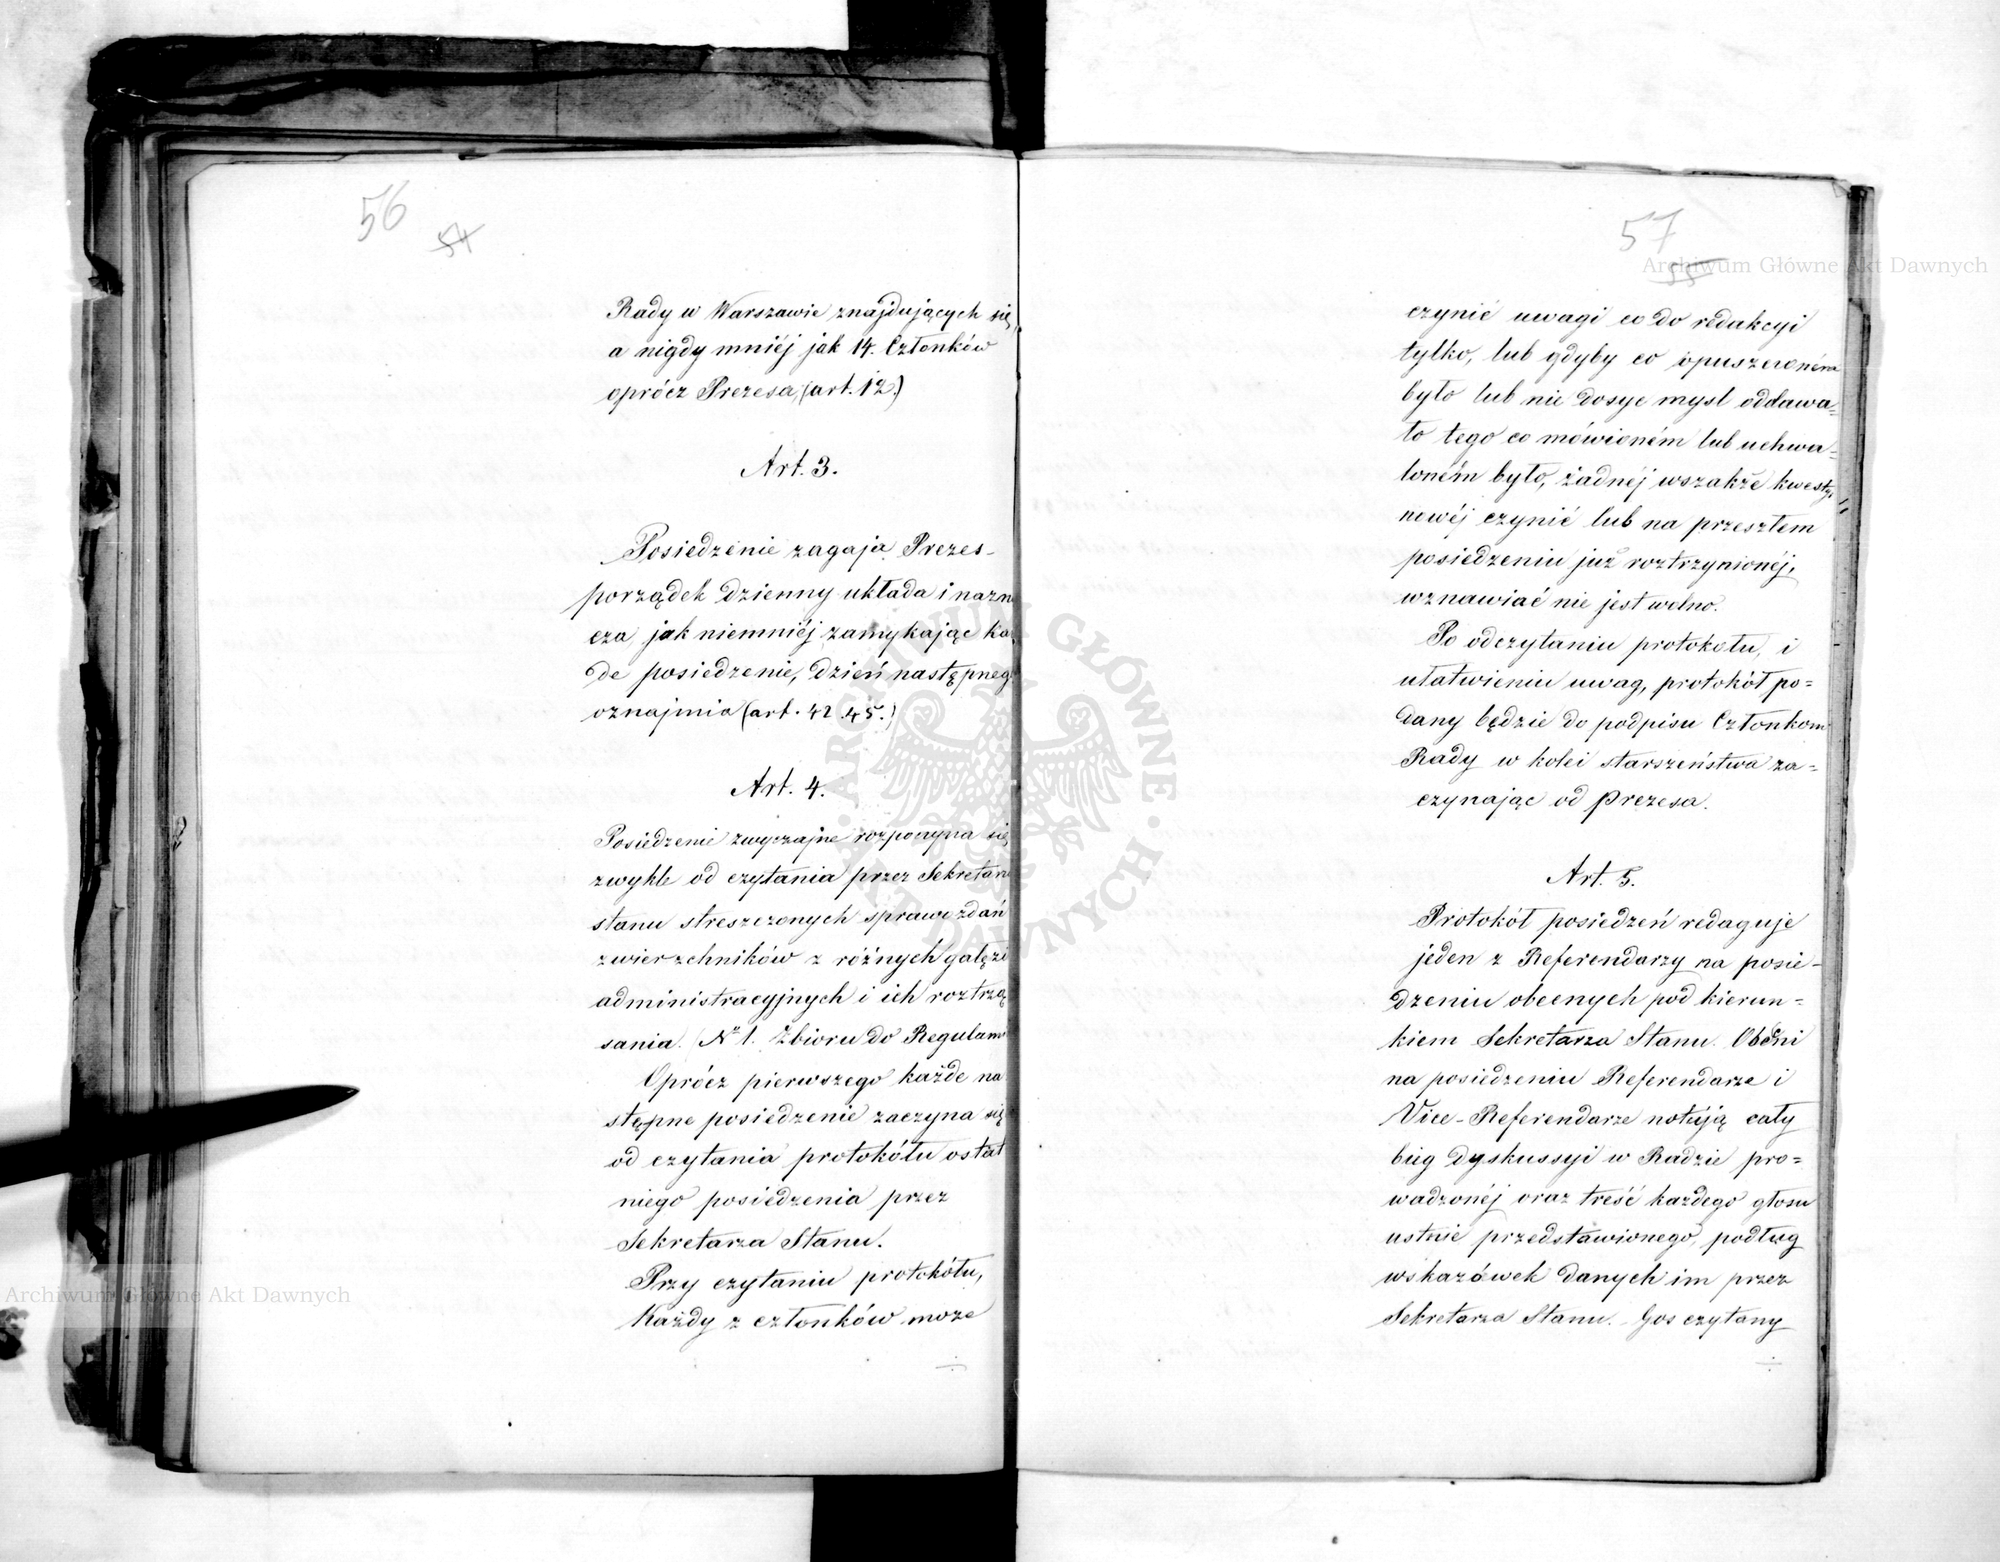 56
54
Rady w Warszawie znajdujących się,
a nigdy mniéj jak 14. Członków
oprócz Prezesa, (art. 12.)
Art. 3.
Posiedzenie zagaja Prezes -
porządek dzienny układa i nazna
cza, jak niemniéj zamykając ka
de posiedzenie, dzień następneg
oznajmia (art. 42.45.)
Art. 4.
Posiedzenie zwyczajne rozpoczyna się
zwykle od czytania przez Sekretarz
stanu streszczonych sprawozdań
zwierzchników z różnych gałęzi
administracyjnych i ich roztrzą
sania. (Nº 1. Zbioru do Regulam
Oprócz pierwszego każde na
stępne posiedzenie zaczyna się
od czytania protokółu ostat
niego posiedzenia przez
Sekretarza Stanu.
Przy czytaniu protokółu,
Każdy z członków może
57
55
czynić uwagi co do redakcyi
tylko, lub gdyby co opuszczoném
było lub nie dosyc mysl oddawa=
ło tego co mówioném lub uchwa=
loném było, żadnéj wszakże kwesty,
nowéj czynić lub na przeszłem
posiedzeniu już roztrzynionéj,
wznawiać nie jest wolno.
Po odczytaniu protokołu, i
ułatwieniu uwag, protokół po=
dany będzie do podpisu Członkom
Rady w kolei starszeństwa za=
czynając od Prezesa.
Art. 5.
Protokół posiedzeń redaguje
jeden z Referendarzy na posie-
dzeniu obecnych pod kierun=
kiem Sekretarza Stanu. Obecni
na posiedzeniu Referendarze i
Vice-Referendarze notują cały
bieg dyskussyi w Radzie pro=
wadzonéj oraz treść każdego głosu
ustnie przedstawionego, podług
wskazówek danych im przez
Sekretarza Stanu. Gos czytany
Archiwum Główne Akt Dawnych
Archiwum Główne Akt Dawnych
ARCHIWUM GŁÓWNE AKT DAWNYCH